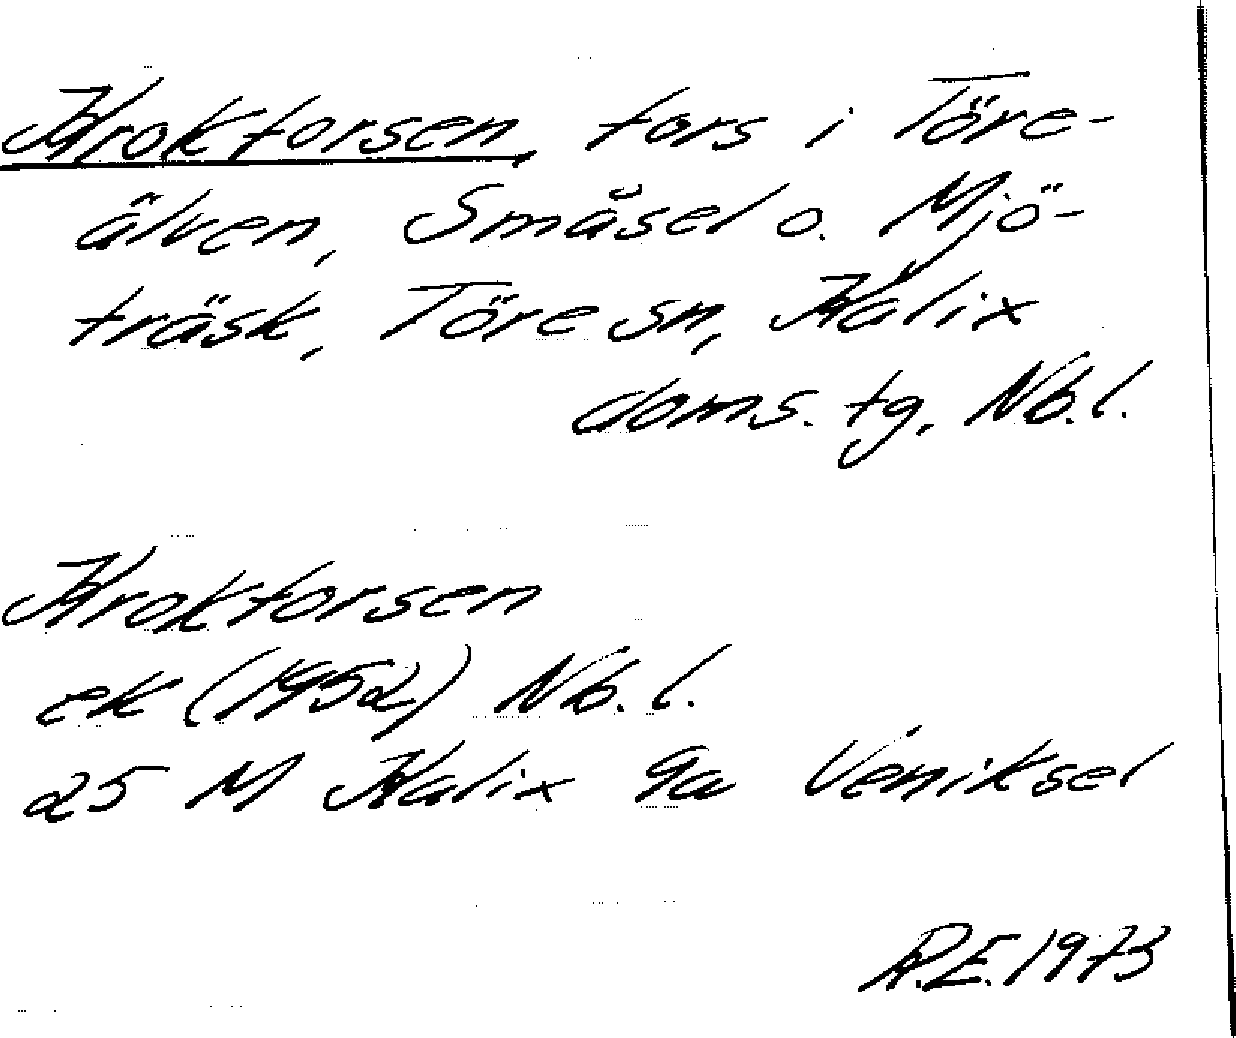 Krokforsen, fors i Töre-
älven, Småsel o. Mjö-
träsk, Töre sn, Kalix
doms. tg, Nb.l.
Krokforsen
ek (1952) Nb.l.
25 M Kalix 9a Veniksel
R.E. 1973